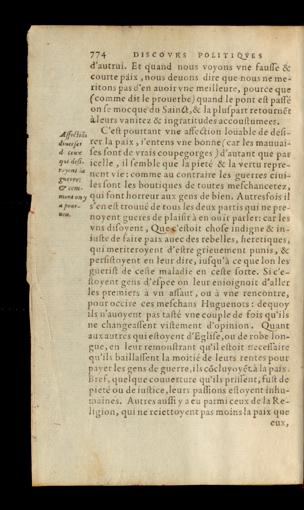 774 DISCOVRS POLITIQVES
d'autrui. Et quand nous voyons vne fausse &
courte paix, nous deuons dire que nous ne me-
ritons pas d'en auoir vne meilleure, pource que
(comme dit le prouerbe) quand le pont est passé
on se mocque du Sainct, & la pluspart retournēt
à leurs vanitez & ingratitudes accoustumees.
C'est pourtant vne affection louable de desi-
rer la paix, i'entens vne bonne (car les mauuai-
ses sont de vrais coupegorges) d'autant que par
icelle, il semble que la pieté & la vertu repre-
nent vie: comme au contraire les guerres ciui-
les sont les boutiques de toutes meschancetez,
qui font horreur aux gens de bien. Autresfois il
s'en est trouué de tous les deux partis qui ne pre-
noyent gueres de plaisir à en ouir parler: car les
vns disoyent, Que c'estoit chose indigne & in-
iuste de faire paix auec des rebelles, heretiques,
qui meriteroyent d'estre grieuement punis, &
persistoyent en leur dire, iusqu'à ce que lon les
guerist de ceste maladie en ceste sorte. Si c'e-
stoyent gens d'espee on leur enioignoit d'aller
les premiers à vn assaut, ou à vne rencontre,
pour occire ces meschans Huguenots: dequoy
ils n'auoyent pas tasté vne couple de fois qu'ils
ne changeassent vistement d'opinion. Quant
aux autres qui estoyent d'Eglise, ou de robe lon-
gue, en leur remonstrant qu'il estoit necessaire
qu'ils baillassent la moitié de leurs rentes pour
payer les gens de guerre, ils cōcluoyēt à la paix.
Bref, quelque couuerture qu'ils prissent, fust de
pieté ou de iustice, leurs passions estoyent inhu-
maines. Autres aussi y a eu parmi ceux de la Re-
ligion, qui ne reiettoyent pas moins la paix que
eux,
Affectiōs
diuerses
de ceux
qui desi-
royent la
guerre:
& com-
ment on y
a pour-
ueu.